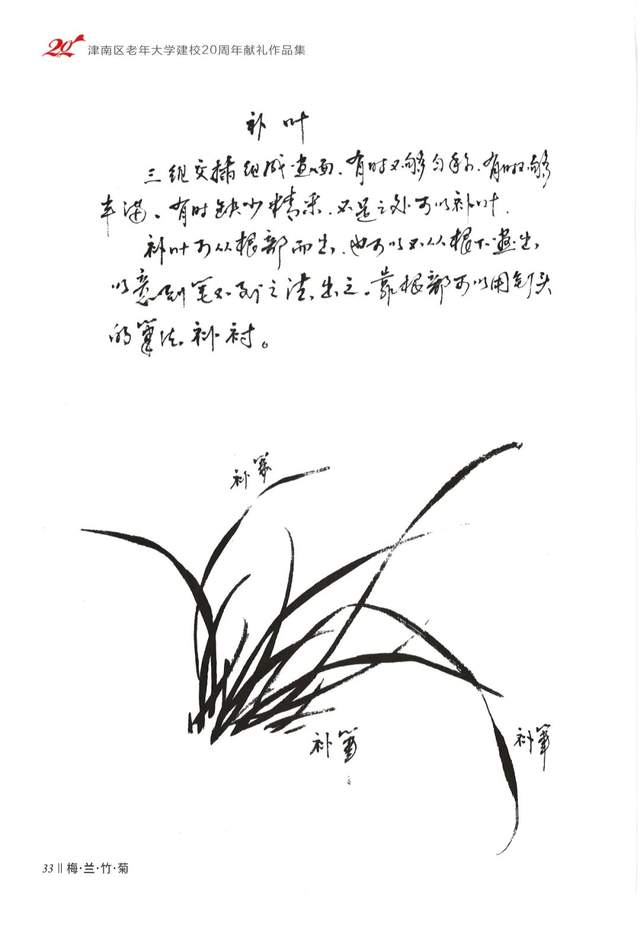 20 津南区老年大学建校20周年献礼作品集
补叶
三组交插组成画面、有时不够匀称、有时不够
丰满、有时缺少精采、不足之处可以补叶.
补叶可从根部而生.也可以不从根下画生,
以意到笔不到之法,生之。靠根部可以用钉头
的笔法,补衬。
补笔
补笔
补笔
33 || 梅·兰·竹·菊